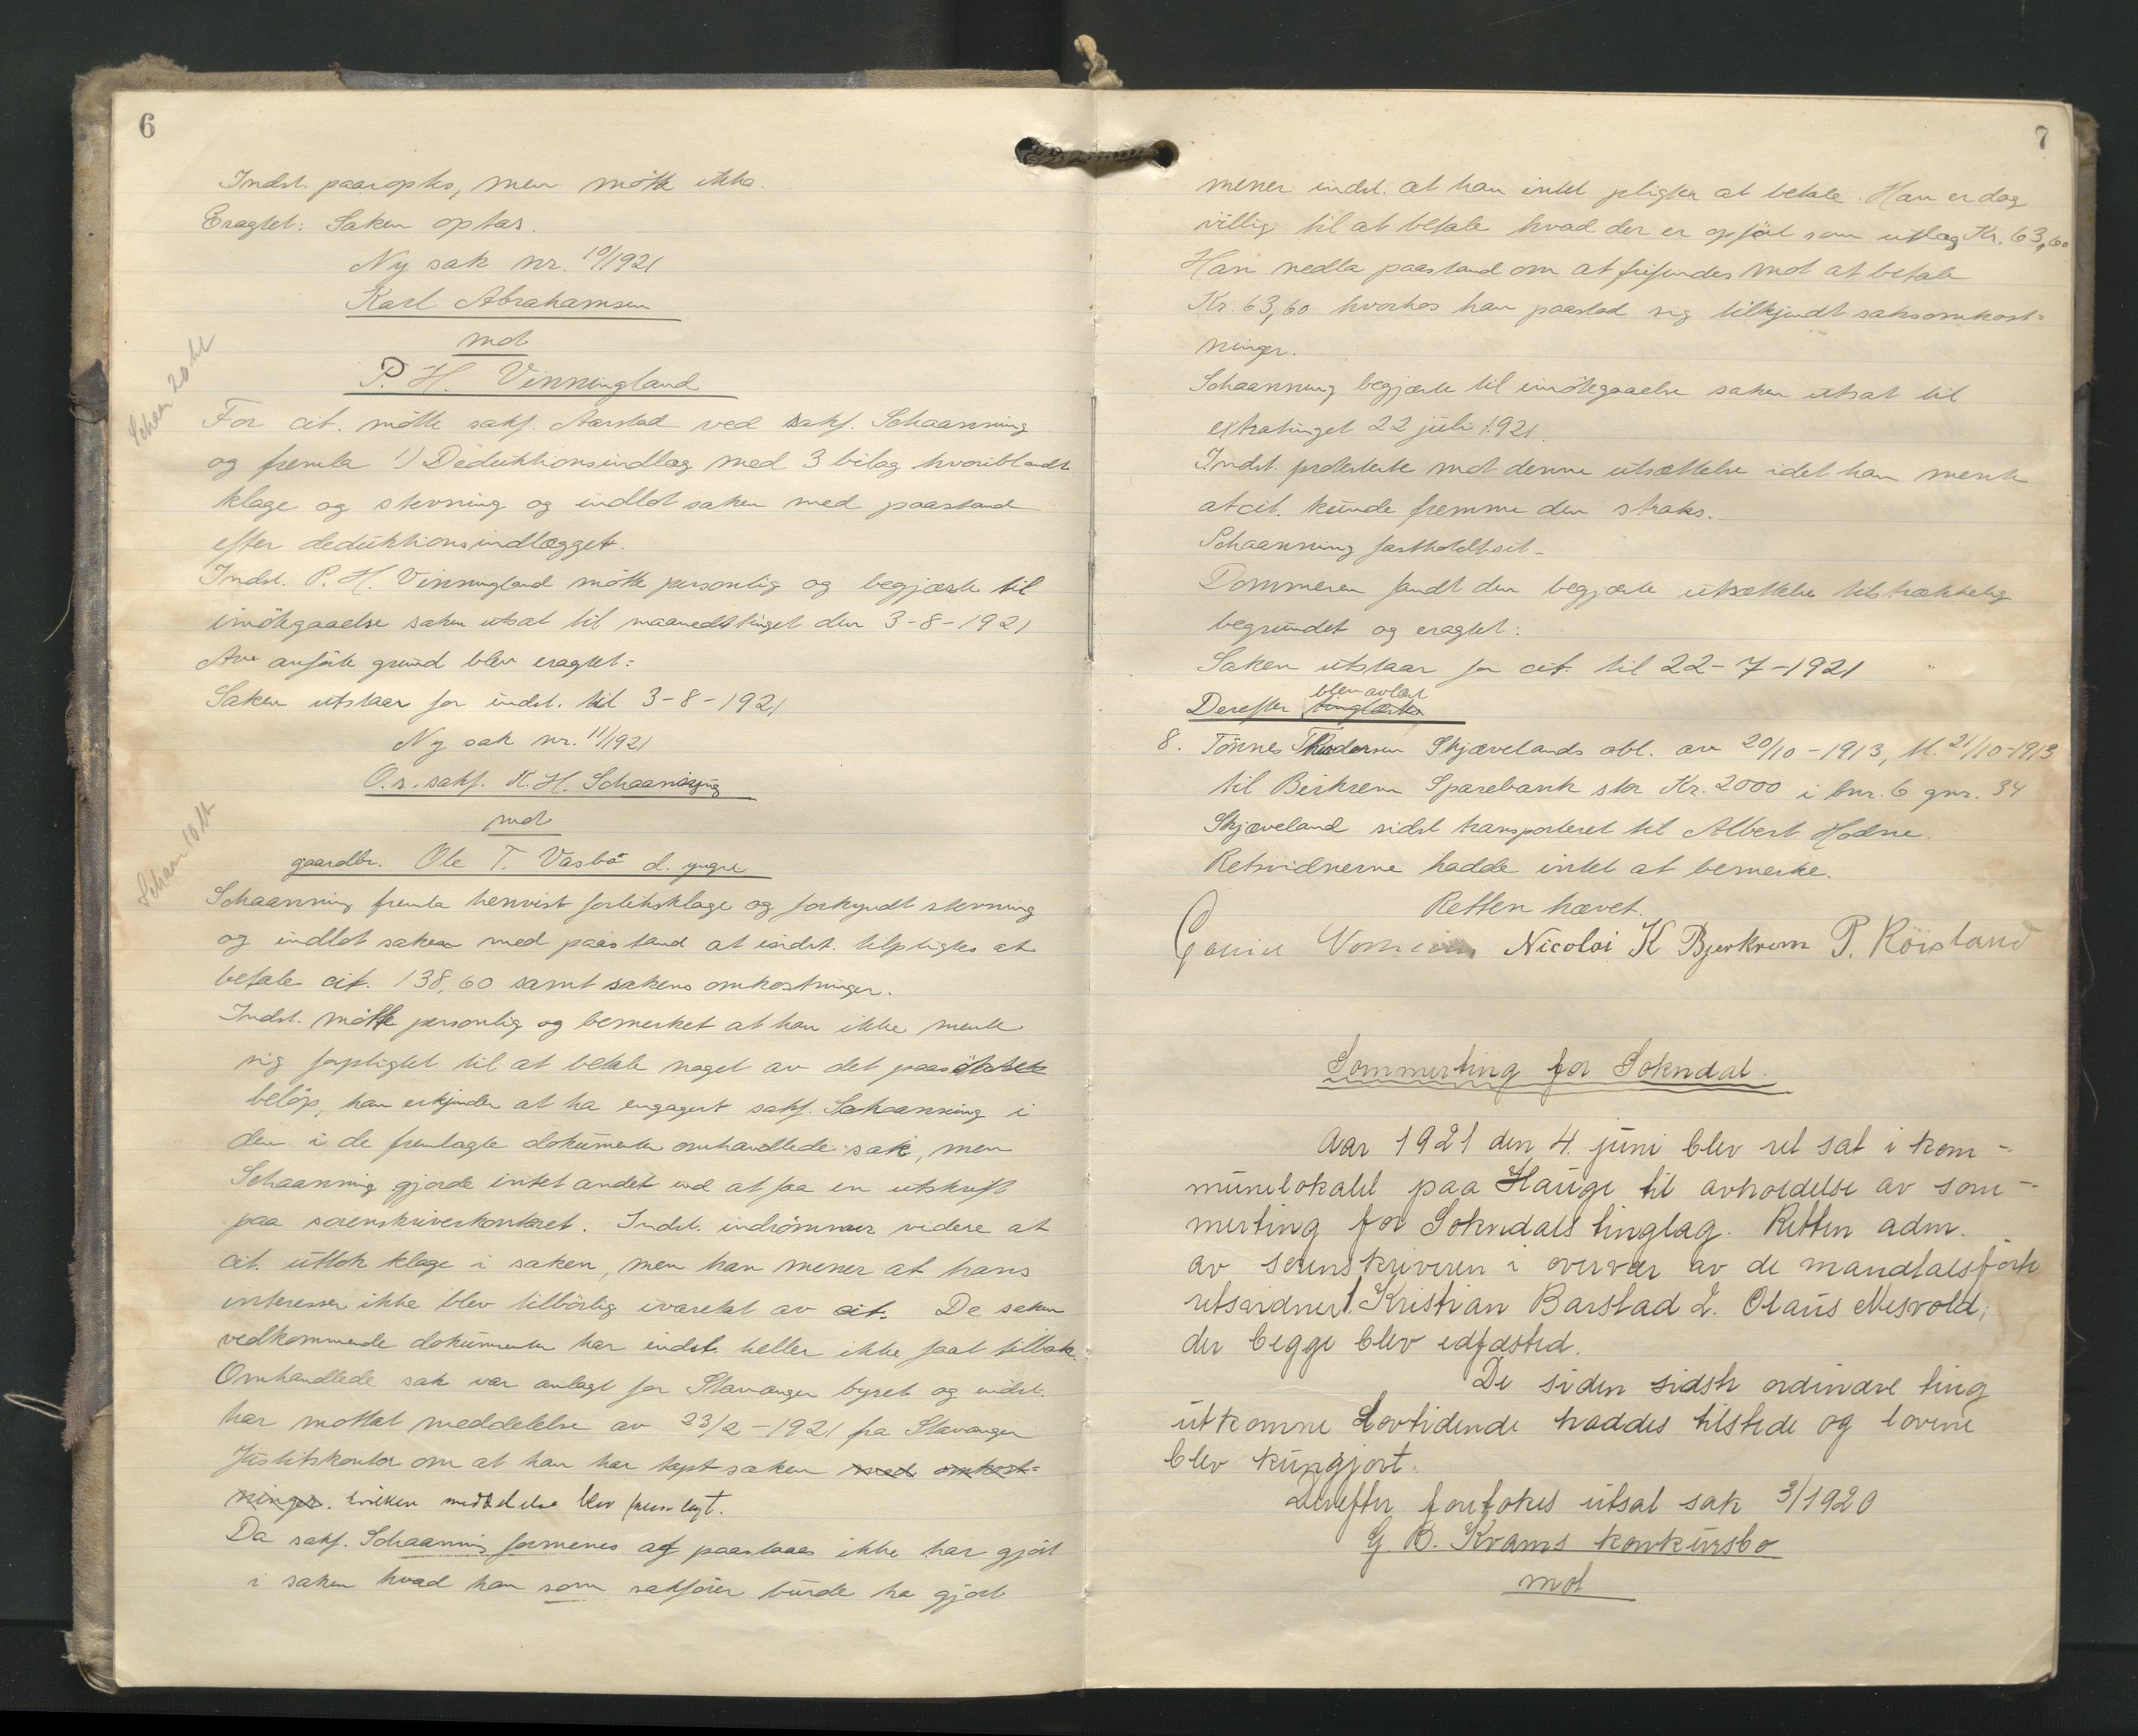 6
Indst. paaroptes, men møtte ikke.
Eragtet: Saken optas.
Ny sak nr. 10/1921
Karl Abrahamsen
mot
P. H. Vinningland
Schaan 20 bl
For cit. møtte sakf. Aarstad ved sakf. Schaanning
og fremla 1) Deduktionsindlæg med 3 bilag hvoriblandt
klage og stevning og indlot saken med paastand
efter deduktionsindlægget.
Indst. P. H. Vinningland møtte personlig og begjærte til
imøtegaaelse saken utsat til maanedstinget den 3-8-1921
Av anførte grund blev eragtet:
Saken utstaar for indst. til 3-8-1921
Ny sak nr. 11/1921
O.r. sakf. K. H. Schaanning
mot
gaardbr. Ole T. Vasbø d. yngre
Schaan 10 bl
Schaanning fremla henvist forliksklage og forkyndt stevning
og indlot saken med paastand at indst. tilpligtes at
betale cit. 138,60 samt sakens omkostninger.
Indst. møtte personlig og bemerket at han ikke mente
sig forpligtet til at betale noget av det paastevnte
beløp, han erkjender at ha engagert sakf. Schaanning i
den i de fremlagte dokumenter omhandlede sak, men
Schaanning gjorde intet andet end at faa en utskrift
paa sorenskriverkontoret. Indst. indrømmer videre at
cit. uttok klage i saken, men han mener at hans
interesser ikke blev tilbørlig ivaretat av cit. De saken
vedkommende dokumenter har indst. heller ikke faat tilbake.
Omhandlede sak var anlagt for Stavanger byret og indst.
har mottat meddelelse av 23/2-1921 fra Stavanger
Justitskontor om at han har tapt saken med omkost=
ninger. hvilken meddelelse blev fremlagt.
Da sakf. Schaanning formenes at paastaaes ikke har gjort
i saken hvad han som sakfører burde ha gjort
7
mener indst. at han intet pligter at betale. Han er dog
villig til at betale hvad der er opført som utlæg Kr. 63,60
Han nedla paastand om at frifindes mot at betale
Kr. 63,60 hvorhos han paastod sig tilkjendt saksomkost=
ninger.
Schaanning begjærte til imøtegaaelse saken utsat til
extratinget 22 juli 1921.
Indst. protesterte mot denne utsættelse idet han mente
at cit. kunde fremme den straks.
Schaanning fastholdt sit.
Dommeren fandt den begjærte utsættelse tilstrækkelig
begrundet og eragtet:
Saken utstaar for cit. til 22-7-1921
blev avlæst
Derefter tinglæstes
8. Tønnes Thodersen Skjævelands obl. av 20/10-1913, tl. 21/10-1913
til Birkrem Sparebank stor Kr. 2000 i bnr. 6 gnr. 34
Skjæveland sidst transporteret til Albert Hodne.
Retsvidnerne hadde intet at bemerke.
Retten hævet.
Nicolai K Bjerkrem P. Röisland
Sommerting for Sokndal.
Aar 1921 den 4. juni blev ret sat i kom-
munelokalet paa Hauge til avholdelse av som-
merting for Sokndals tinglag. Retten adm.
av sorenskriveren i overvær av de mandtalsførte
retsvidner 1. Kristian Barstad 2. Olaus Mesvold,
der begge blev edfæsted.
De siden sidste ordinære ting
utkomne Lovtidende haddes tilstede og lovene
blev kungjort.
Derefter foretokes utsat sak 3/1920
G. B. Kvams konkursbo
mot